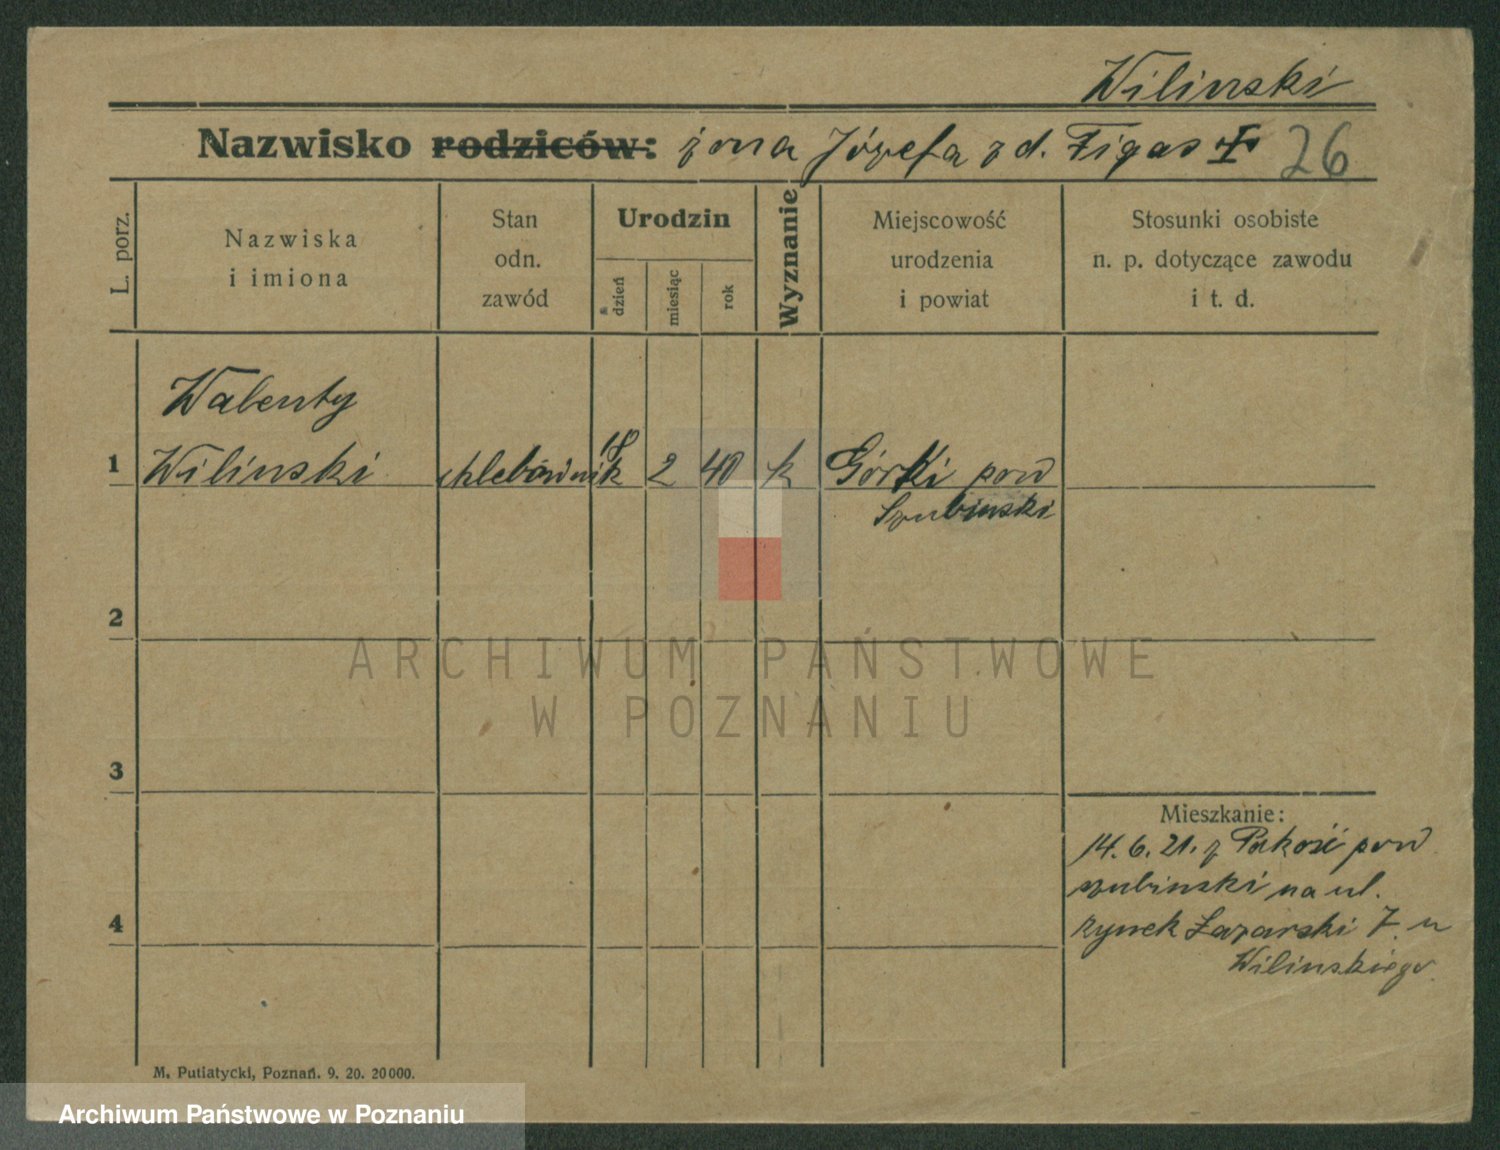 Wilinski
Nazwisko rodziców: żona Józefa z d. Figas
26
L. porz.
Nazwiska
i imiona
Stan
odn.
zawód
Urodzin
dzień
miesiąc
rok
Wyznanie
Miejscowość
urodzenia
i powiat
Stosunki osobiste
n. p. dotyczące zawodu
i t. d.
Walenty
1 Wilinski chlebównik 18 2 40 k Górki pow
Szubinski
2
ARCHIWUM PAŃSTWOWE
W POZNANIU
3
Mieszkanie:
14. 6. 21. z Pakość pow
szubinski na ul.
4 rynek Łazarski 7. u
Wilinskiego
M. Putiatycki, Poznań. 9. 20. 20000.
Archiwum Państwowe w Poznaniu